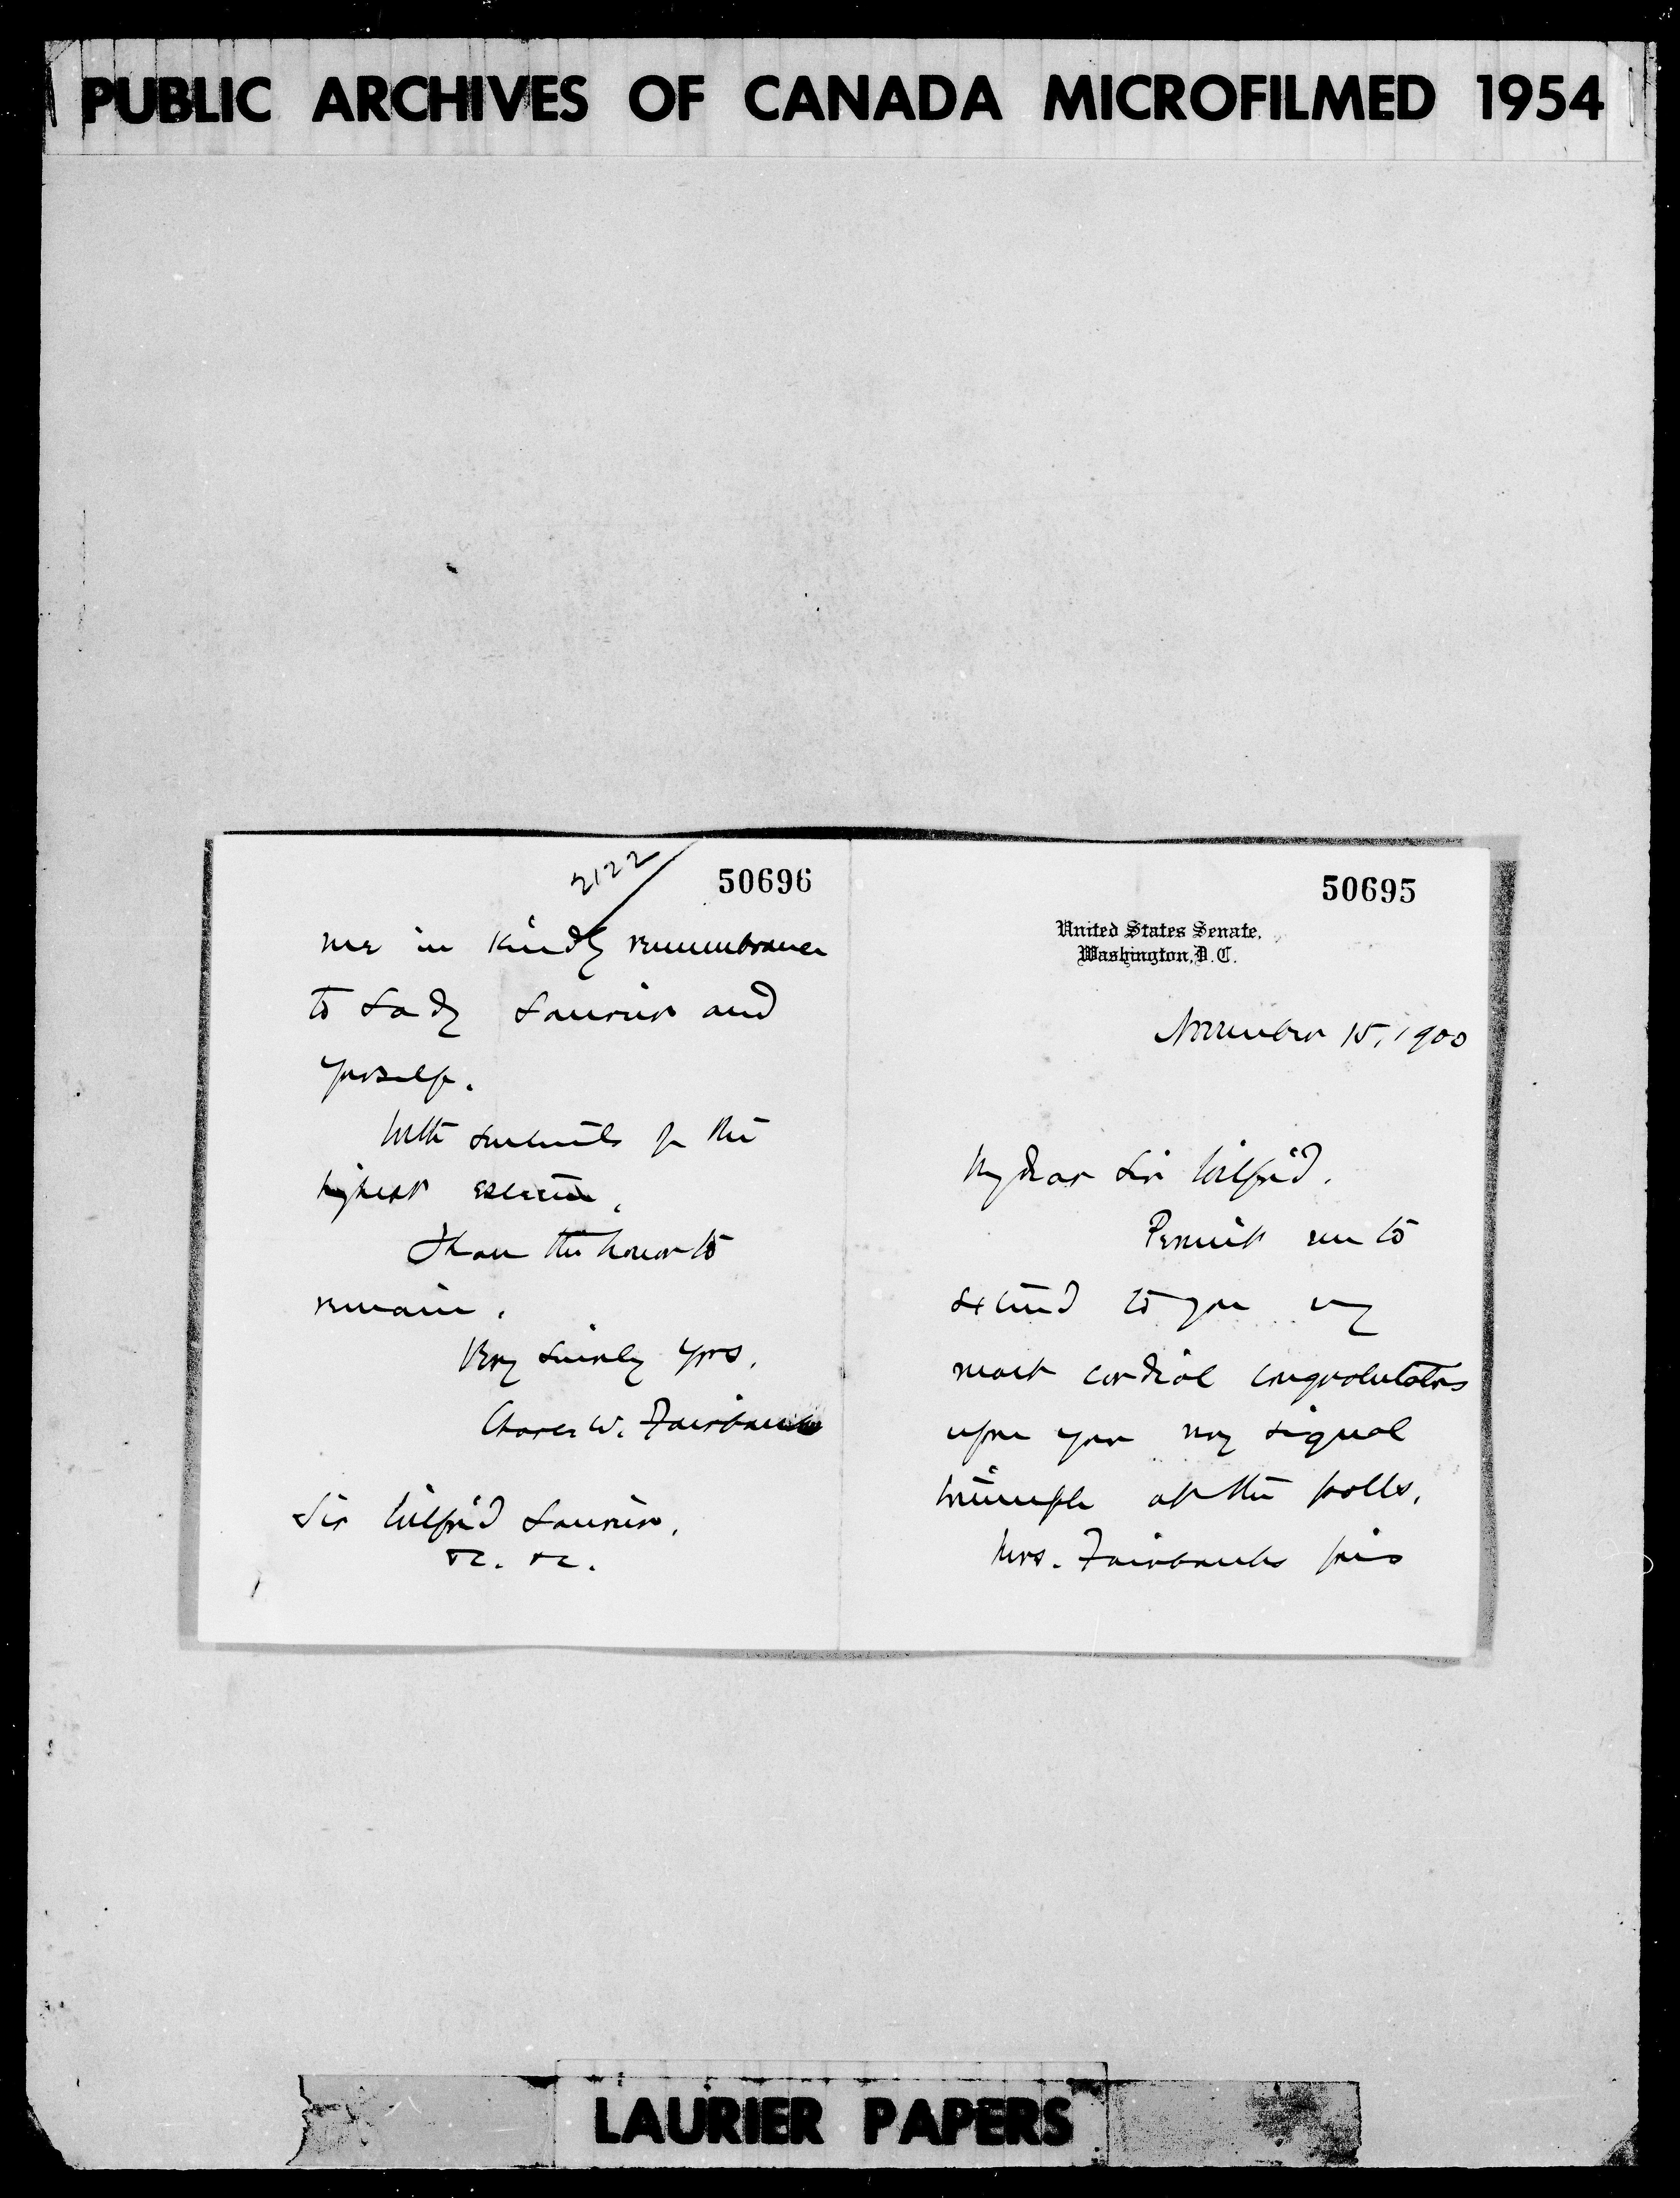 PUBLIC ARCHIVES OF CANADA MICROFILMED 1954
50695
United States Senate,
Washington, D. C.
November 15, 1900
My dear Sir Wilfrid.
Permit me to
extend to you my
most cordial congratulations
upon your very signal
triumph at the polls.
Mrs. Fairbanks joins
2122
50696
me in kindly remembrance
to Lady Laurier and
yourself.
With sentiments of the
highest esteem,
I have the honor to
remain.
Very sincerely yrs,
Charles W. Fairbanks
Sir Wilfrid Laurier,
&c. &c.
LAURIER PAPERS